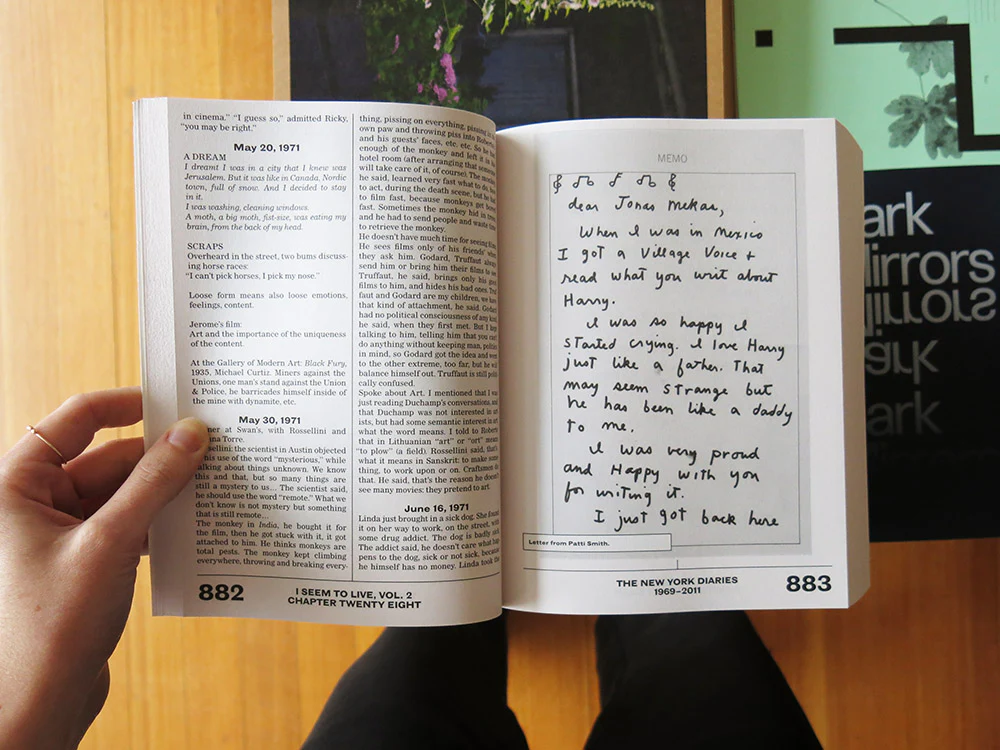 in cinema." "I guess so," admitted Ricky,
"you may be right."
May 20, 1971
A DREAM
I dreamt I was in a city that I knew was
Jerusalem. But it was like in Canada. Nordic
town, full of snow. And I decided to stay
in it.
I was washing, cleaning windows.
A moth, a big moth, fist-size, was eating my
brain, from the back of my head.
SCRAPS
Overheard in the street, two bums discuss-
ing horse races:
"I can't pick horses, I pick my nose."
Loose form means also loose emotions,
feelings, content.
Jerome's film:
Art and the importance of the uniqueness
of the content.
At the Gallery of Modern Art: Black Fury,
1935, Michael Curtiz. Miners against the
Unions, one man's stand against the Union
& Police, he barricades himself inside of
the mine with dynamite, etc.
May 30, 1971
at Swan's, with Rossellini and
Torre.
the scientist in Austin objected
use of the word "mysterious," while
talking about things unknown. We know
this and that, but so many things are
still a mystery to us... The scientist said,
he should use the word "remote." What we
don't know is not mystery but something
that is still remote...
The monkey in India, he bought it for
the film, then he got stuck with it, it got
attached to him. He thinks monkeys are
total pests. The monkey kept climbing
everywhere, throwing and breaking every-
thing, pissing on everything, pissing in his
own paw and throwing piss into Roberto's
and his guests' faces, etc. etc. So he had
enough of the monkey and left it in the
hotel room (after arranging that someone
will take care of it, of course). The monkey,
he said, learned very fast what to do, how
to act, during the death scene, but he had
to film fast, because monkeys get bored
fast. Sometimes the monkey hid in trees,
and he had to send people and waste time
to retrieve the monkey.
He doesn't have much time for seeing films.
He sees films only of his friends' when
they ask him. Godard, Truffaut always
send him or bring him their films to see.
Truffaut, he said, brings only his good
films to him, and hides his bad ones. Truf-
faut and Godard are my children, we have
that kind of attachment, he said. Godard
had no political consciousness of any kind,
he said, when they first met. But I kept
talking to him, telling him that you can't
do anything without keeping man, politics
in mind, so Godard got the idea and went
to the other extreme, too far, but he will
balance himself out. Truffaut is still politi-
cally confused.
Spoke about Art. I mentioned that I was
just reading Duchamp's conversations, and
that Duchamp was not interested in art-
ists, but had some semantic interest in
what the word means. I told to Roberto
that in Lithuanian "art" or "ort" means
"to plow" (a field). Rossellini said, that's
what it means in Sanskrit: to make some-
thing, to work upon or on. Craftsmen do
that. He said, that's the reason he doesn't
see many movies: they pretend to art.
June 16, 1971
Linda just brought in a sick dog. She found
it on her way to work, on the street, with
some drug addict. The dog is badly sick.
The addict said, he doesn't care what hap-
pens to the dog, sick or not sick, because
he himself has no money. Linda took the
882
I SEEM TO LIVE, VOL. 2
CHAPTER TWENTY EIGHT
MEMO
dear Jonas Mekas,
When I was in Mexico
I got a Village Voice +
read what you writ about
Harry.
I was so happy I
started crying. I love Harry
just like a father. That
may seem strange but
he has been like a daddy
to me.
I was very proud
and Happy with you
for writing it.
I just got back here
Letter from Patti Smith.
THE NEW YORK DIARIES
1969–2011
883
ark
irrors
ark